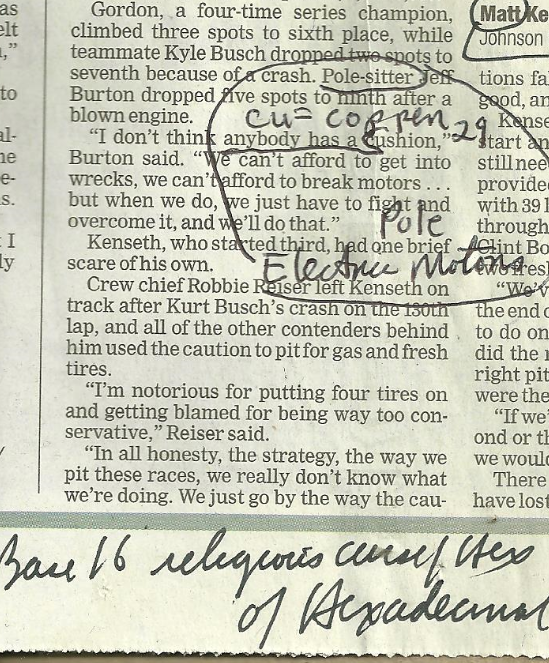 as
elt
,"
to
al-
ne
e-
s.
I
ly
Gordon, a four-time series champion,
climbed three spots to sixth place, while
teammate Kyle Busch dropped two spots to
seventh because of a crash. Pole-sitter Jeff
Burton dropped five spots to ninth after a
blown engine.
"I don't think anybody has a cushion,"
Burton said. "We can't afford to get into
wrecks, we can't afford to break motors . . .
but when we do, we just have to fight and
overcome it, and we'll do that."
Kenseth, who started third, had one brief
scare of his own.
Crew chief Robbie Reiser left Kenseth on
track after Kurt Busch's crash on the 130th
lap, and all of the other contenders behind
him used the caution to pit for gas and fresh
tires.
"I'm notorious for putting four tires on
and getting blamed for being way too con-
servative," Reiser said.
"In all honesty, the strategy, the way we
pit these races, we really don't know what
we're doing. We just go by the way the cau-
Matt Ke
Johnson
tions fa
good, an
Kense
start an
still nee
provide
with 39 l
through
Clint Bo
two fresh
"We'v
the end o
to do on
did the r
right pit
were the
"If we'
ond or th
we would
There
have lost
cu = copper 29
Pole
Electric Motors
Base 16 religious curse/Hex
of Hexadecimal